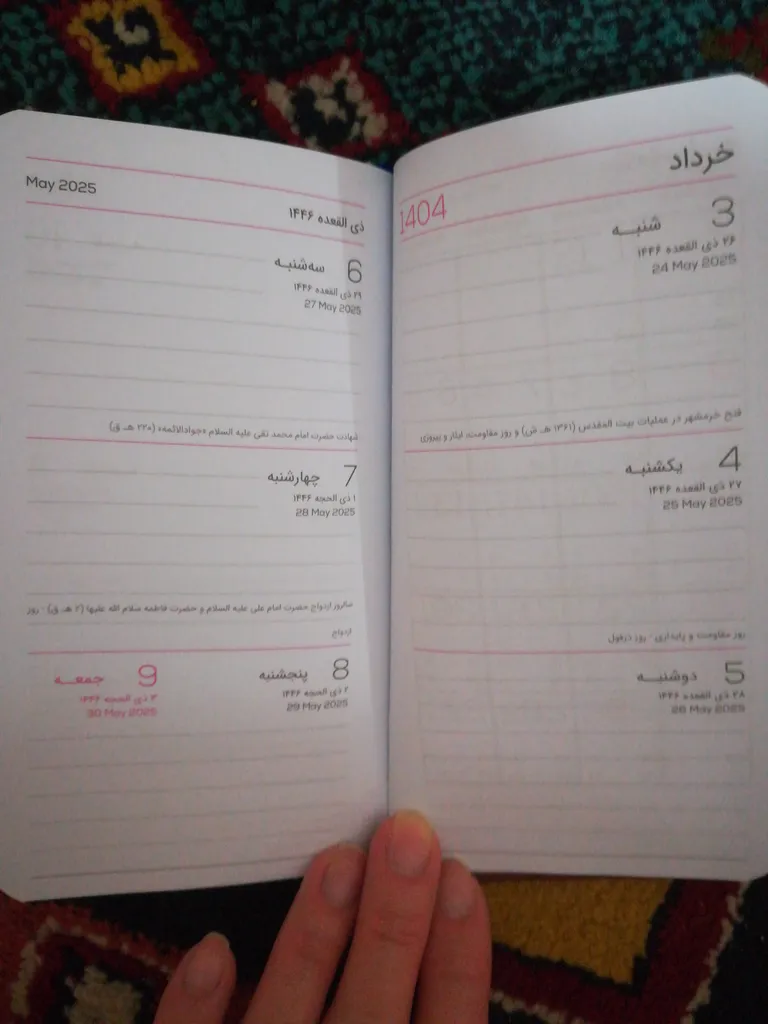 خرداد
1404
3 شنبه
۲۶ ذی القعده ۱۴۴۶
24 May 2025
فتح خرمشهر در عملیات بیت المقدس (۱۳۶۱ هـ ش) و روز مقاومت، ایثار و پیروزی
4 یکشنبه
۲۷ ذی القعده ۱۴۴۶
25 May 2025
روز مقاومت و پایداری - روز دزفول
5 دوشنبه
۲۸ ذی القعده ۱۴۴۶
26 May 2025
May 2025
ذی القعده ۱۴۴۶
6 سه‌شنبه
۲۹ ذی القعده ۱۴۴۶
27 May 2025
شهادت حضرت امام محمد تقی علیه السلام «جوادالائمه» (۲۲۰ هـ ق)
7 چهارشنبه
۱ ذی الحجه ۱۴۴۶
28 May 2025
سالروز ازدواج حضرت امام علی علیه السلام و حضرت فاطمه سلام الله علیها (۲ هـ ق) - روز
ازدواج
8 پنجشنبه
۲ ذی الحجه ۱۴۴۶
29 May 2025
9 جمعه
۳ ذی الحجه ۱۴۴۶
30 May 2025